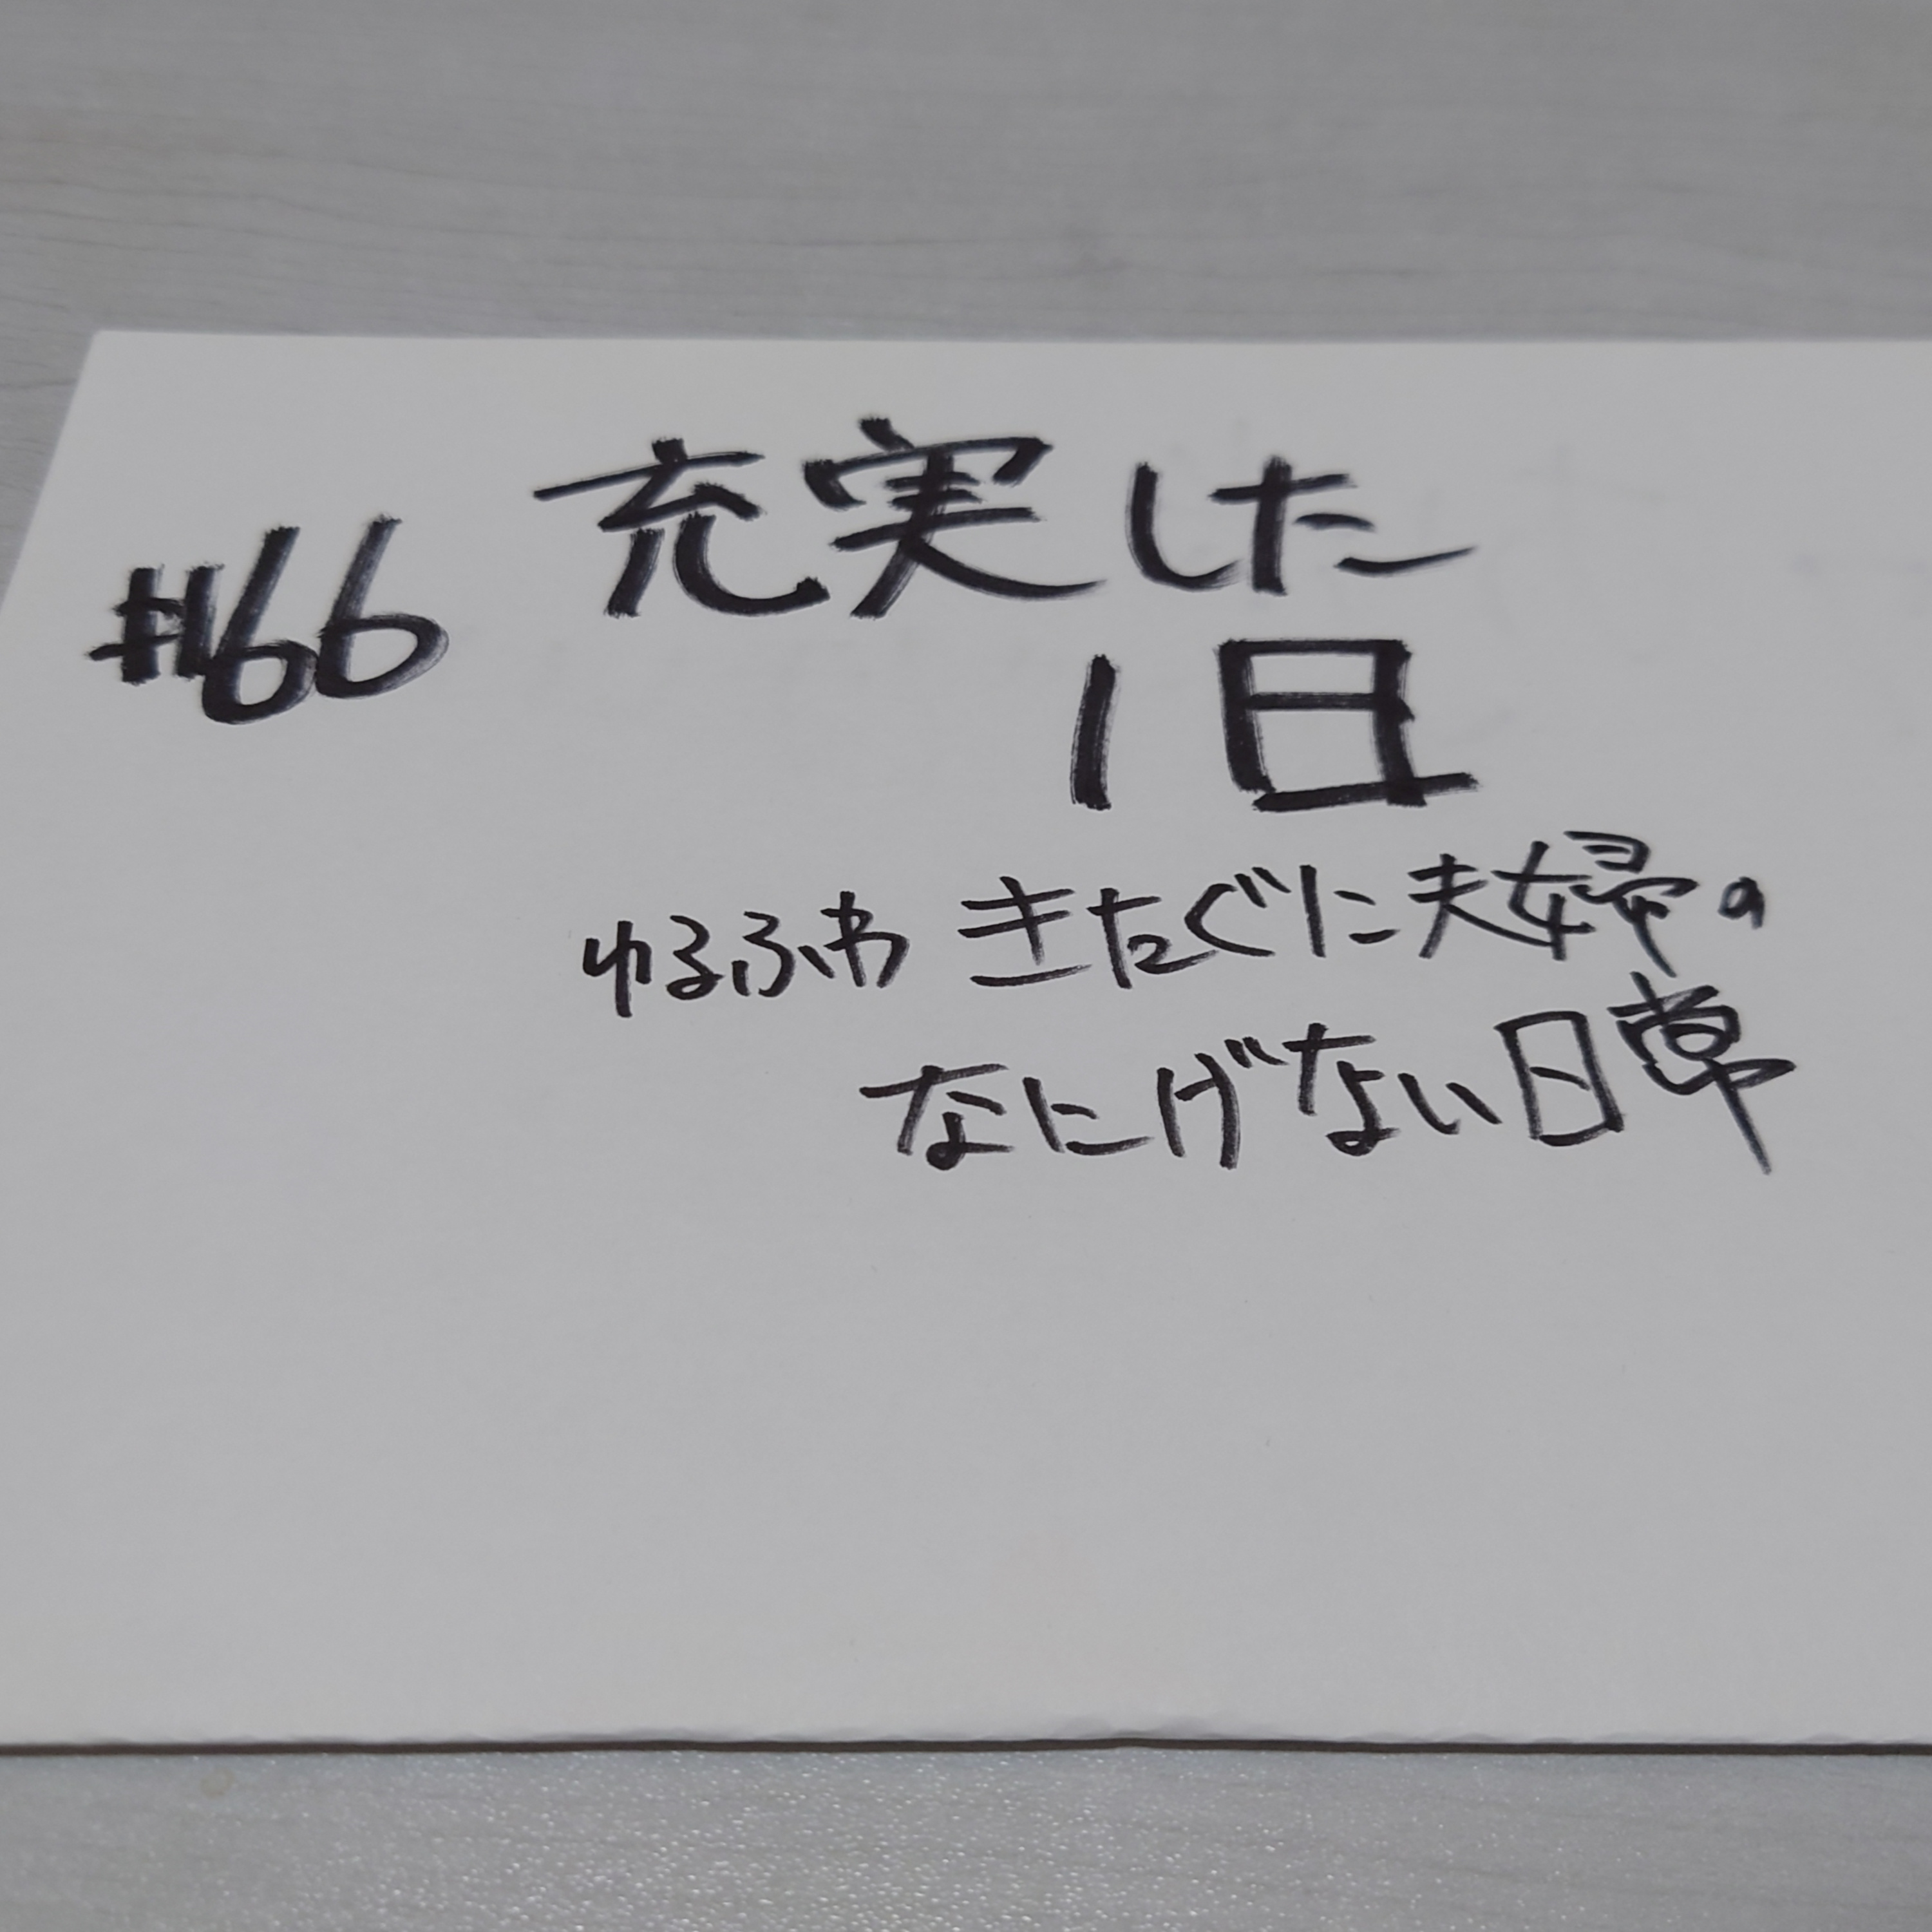 #66
充実した
1日
ゆるふわ きたぐに夫婦の
なにげない日常